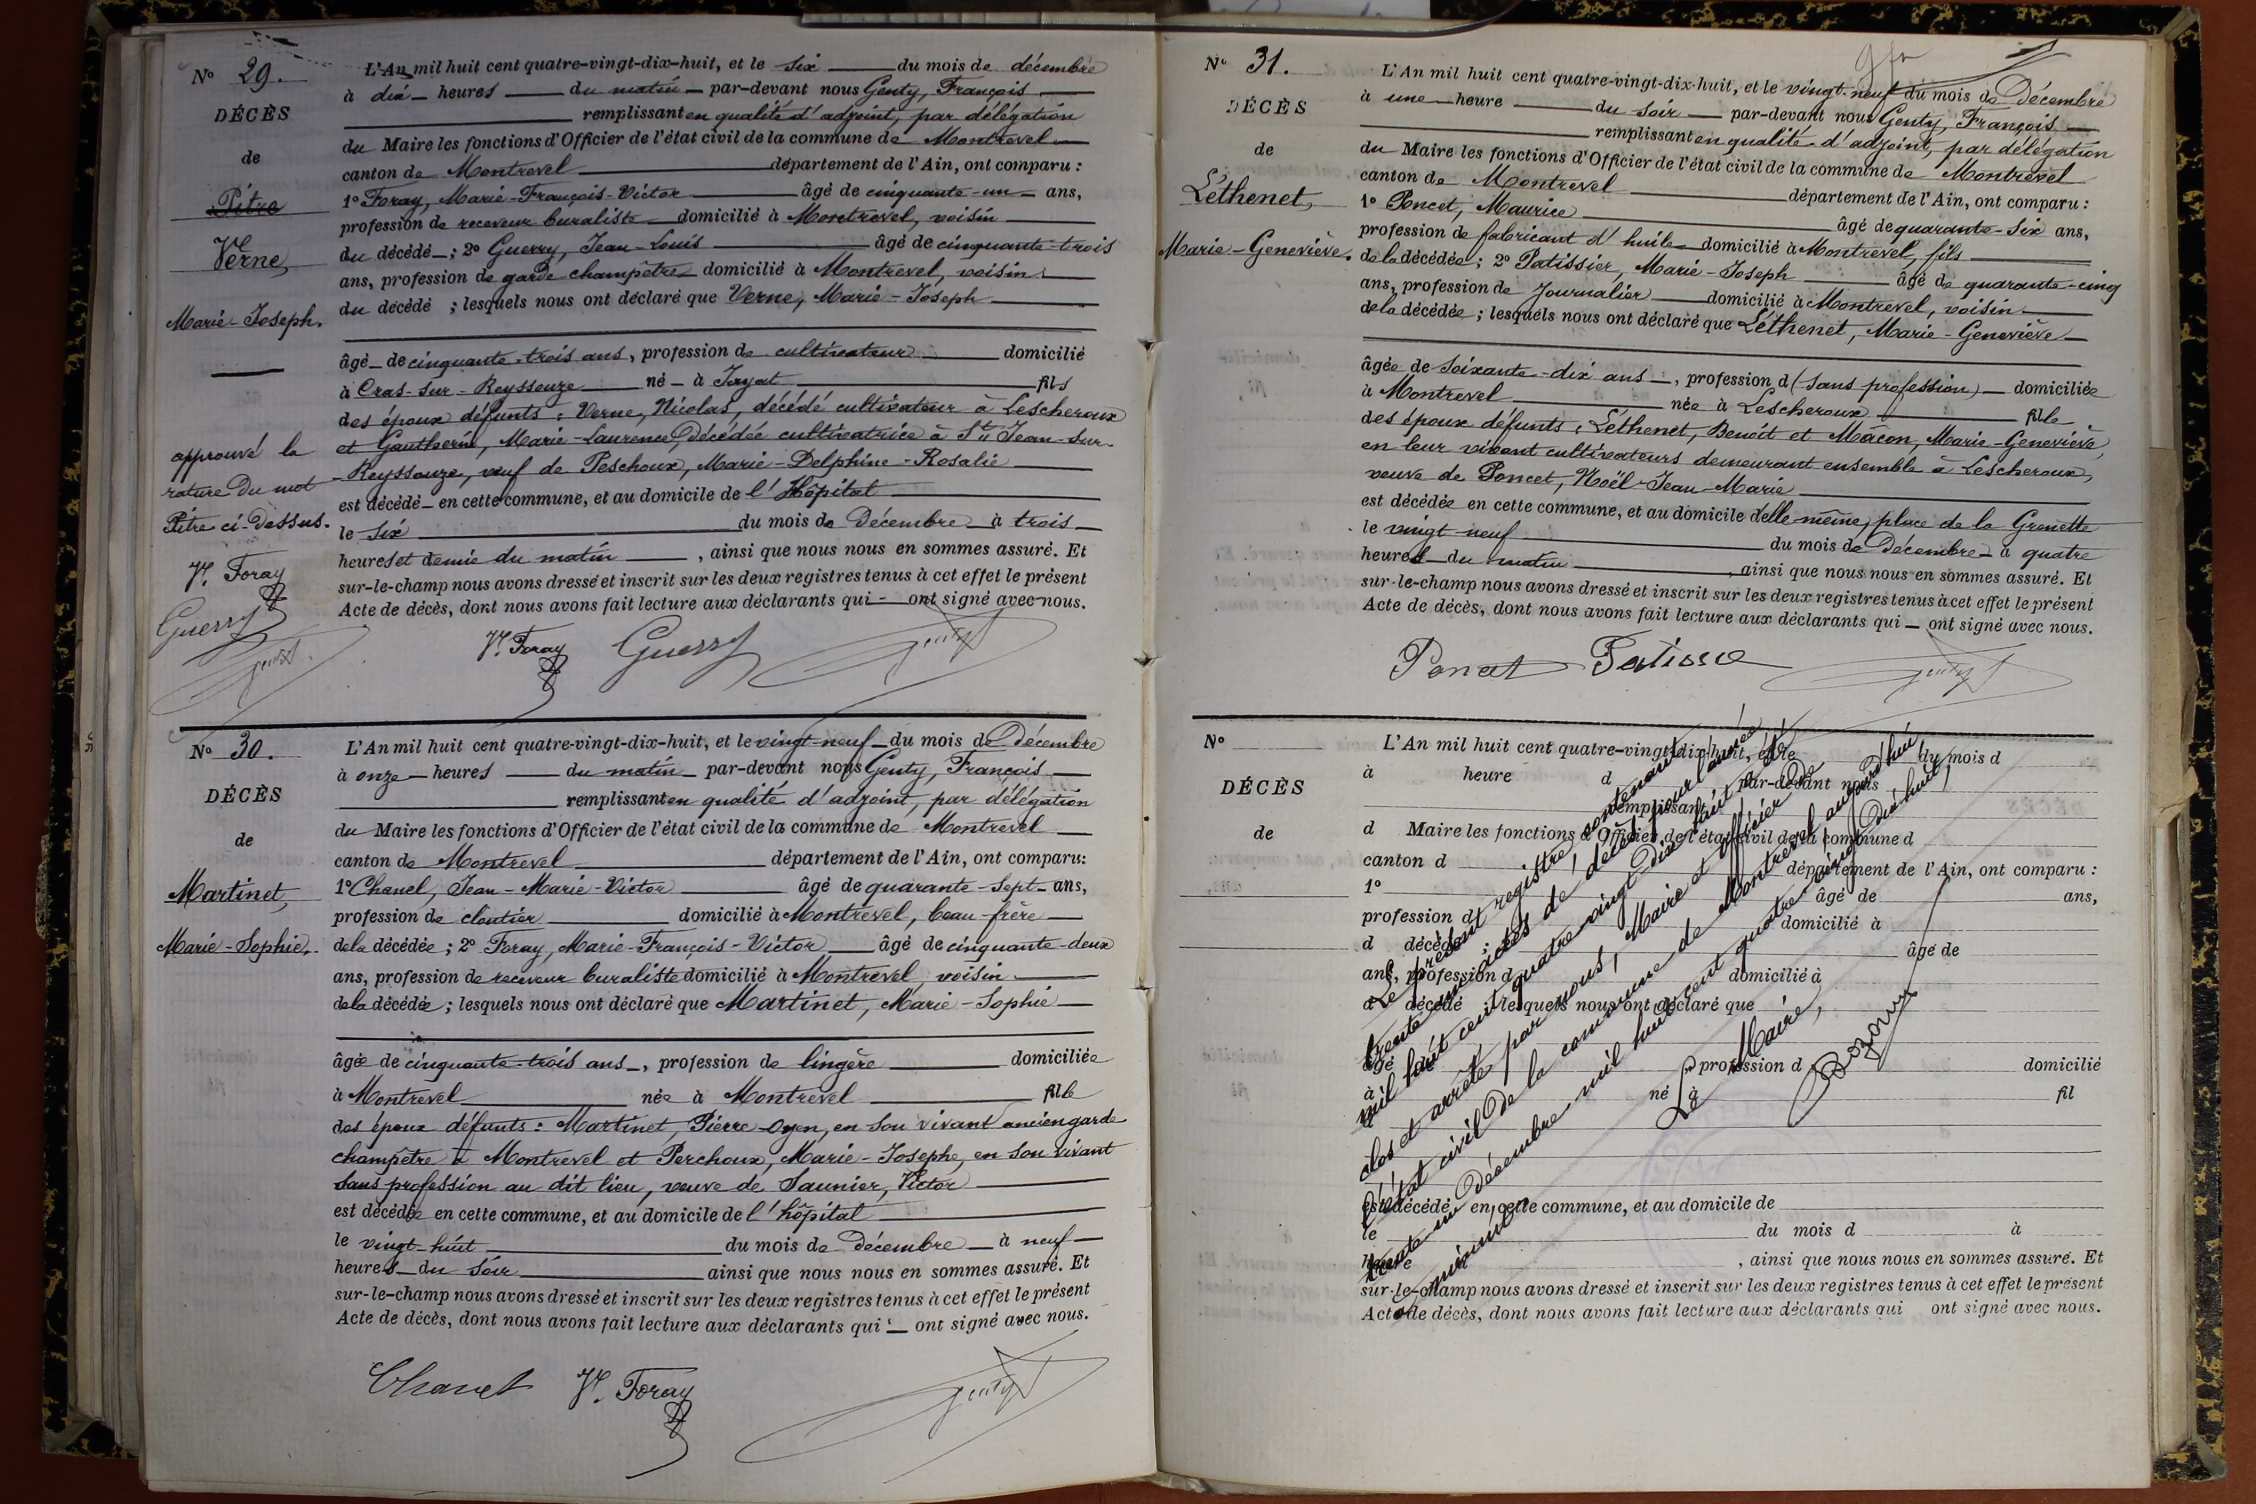 N° 29.
DÉCÈS
de
Pitre
Verne,
Marie-Joseph.
approuvé la
rature du mot
Pitre ci-dessus.
Vr. Foray
Guerry
Genty
L'An mil huit cent quatre-vingt-dix-huit, et le six du mois de décembre
à dix heures du matin par-devant nous Genty, François
remplissant en qualité d'adjoint, par délégation
du Maire les fonctions d'Officier de l'état civil de la commune de Montrevel
canton de Montrevel département de l'Ain, ont comparu :
1° Foray, Marie-François-Victor âgé de cinquante-un ans,
profession de receveur buraliste domicilié à Montrevel, voisin
du décédé ; 2° Guerry, Jean-Louis âgé de cinquante-trois
ans, profession de garde champêtre domicilié à Montrevel, voisin
du décédé ; lesquels nous ont déclaré que Verne, Marie-Joseph
âgé de cinquante-trois ans, profession de cultivateur domicilié
à Cras-sur-Reyssouze né à Jayat fils
des époux défunts : Verne, Nicolas, décédé cultivateur à Lescheroux
et Gautherin, Marie-Laurence, décédée cultivatrice à St Jean-sur-
-Reyssouze, veuf de Peschoux, Marie-Delphine-Rosalie
est décédé en cette commune, et au domicile de l'Hôpital
le six du mois de Décembre à trois
heures et demie du matin, ainsi que nous nous en sommes assuré. Et
sur-le-champ nous avons dressé et inscrit sur les deux registres tenus à cet effet le présent
Acte de décès, dont nous avons fait lecture aux déclarants qui ont signé avec nous.
Vr. Foray Guerry Genty
N° 30.
DÉCÈS
de
Martinet,
Marie-Sophie.
L'An mil huit cent quatre-vingt-dix-huit, et le vingt-neuf du mois de Décembre
à onze heures du matin par-devant nous Genty, François
remplissant en qualité d'adjoint, par délégation
du Maire les fonctions d'Officier de l'état civil de la commune de Montrevel
canton de Montrevel département de l'Ain, ont comparu :
1° Chanel, Jean-Marie-Victor âgé de quarante-sept ans,
profession de cloutier domicilié à Montrevel, beau-frère
de la décédée ; 2° Foray, Marie-François-Victor âgé de cinquante-deux
ans, profession de receveur buraliste domicilié à Montrevel, voisin
de la décédée ; lesquels nous ont déclaré que Martinet, Marie-Sophie
âgée de cinquante-trois ans, profession de lingère domiciliée
à Montrevel née à Montrevel fille
des époux défunts : Martinet, Pierre-Oyen, en son vivant ancien garde
champêtre à Montrevel et Perchoux, Marie-Josephe, en son vivant
sans profession au dit lieu, veuve de Saunier, Victor
est décédée en cette commune, et au domicile de l'hôpital
le vingt-huit du mois de Décembre à neuf
heures du soir ainsi que nous nous en sommes assuré. Et
sur-le-champ nous avons dressé et inscrit sur les deux registres tenus à cet effet le présent
Acte de décès, dont nous avons fait lecture aux déclarants qui ont signé avec nous.
Chanel Vr. Foray Genty
N° 31.
DÉCÈS
de
Léthenet,
Marie-Geneviève.
L'An mil huit cent quatre-vingt-dix-huit, et le vingt-neuf du mois de Décembre
à une heure du soir par-devant nous Genty, François
remplissant en qualité d'adjoint, par délégation
du Maire les fonctions d'Officier de l'état civil de la commune de Montrevel
canton de Montrevel département de l'Ain, ont comparu :
1° Poncet, Maurice âgé de quarante-six ans,
profession de fabricant d'huile domicilié à Montrevel, fils
de la décédée ; 2° Patissier, Marie-Joseph âgé de quarante-cinq
ans, profession de Journalier domicilié à Montrevel, voisin
de la décédée ; lesquels nous ont déclaré que Léthenet, Marie-Geneviève
âgée de soixante-dix ans, profession d (sans profession) domiciliée
à Montrevel née à Lescheroux fille
des époux défunts : Léthenet, Benoît et Mâcon, Marie-Geneviève,
en leur vivant cultivateurs demeurant ensemble à Lescheroux,
veuve de Poncet, Noël-Jean-Marie
est décédée en cette commune, et au domicile d'elle-même, place de la Grenette
le vingt-neuf du mois de Décembre à quatre
heures du matin, ainsi que nous nous en sommes assuré. Et
sur-le-champ nous avons dressé et inscrit sur les deux registres tenus à cet effet le présent
Acte de décès, dont nous avons fait lecture aux déclarants qui ont signé avec nous.
Poncet Patissie Genty
N°
DÉCÈS
de
L'An mil huit cent quatre-vingt-dix-huit, et le du mois d
à heure d par-devant nous
remplissant
d Maire les fonctions d'Officier de l'état civil de la commune d
canton d département de l'Ain, ont comparu :
1° âgé de ans,
profession d domicilié à
d décédé ; âgé de
ans, profession d domicilié à
d décédé ; lesquels nous ont déclaré que
âgé profession d domicilié
à né à fil
est décédé en cette commune, et au domicile de
le du mois d à
heure , ainsi que nous nous en sommes assuré. Et
sur-le-champ nous avons dressé et inscrit sur les deux registres tenus à cet effet le présent
Acte de décès, dont nous avons fait lecture aux déclarants qui ont signé avec nous.
Le présent registre, contenant
trente-un actes de décès pour l'année
mil huit cent quatre-vingt-dix-huit a été
clos et arrêté par nous, Maire et officier de
l'état civil de la commune de Montrevel, aujourd'hui
trente-un décembre mil huit cent quatre-vingt-dix-huit,
à minuit.
Le Maire,